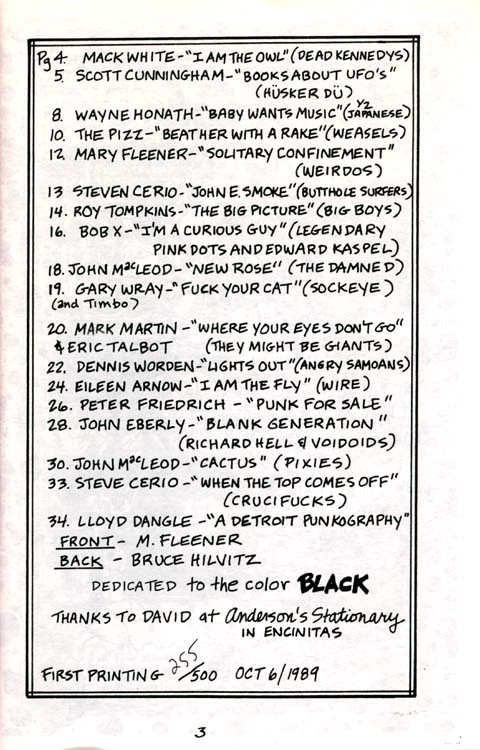 Pg 4. MACK WHITE-"I AM THE OWL" (DEAD KENNEDYS)
5. SCOTT CUNNINGHAM-"BOOKS ABOUT UFO'S"
(HÜSKER DÜ)
8. WAYNE HONATH-"BABY WANTS MUSIC" (1/2 JAPANESE)
10. THE PIZZ-"BEAT HER WITH A RAKE" (WEASELS)
12. MARY FLEENER-"SOLITARY CONFINEMENT"
(WEIRDOS)
13 STEVEN CERIO-"JOHN E. SMOKE" (BUTTHOLE SURFERS)
14. ROY TOMPKINS-"THE BIG PICTURE" (BIG BOYS)
16. BOB X-"I'M A CURIOUS GUY" (LEGENDARY
PINK DOTS AND EDWARD KASPEL)
18. JOHN MacLEOD-"NEW ROSE" (THE DAMNED)
19. GARY WRAY-"FUCK YOUR CAT" (SOCKEYE)
(and Timbo)
20. MARK MARTIN-"WHERE YOUR EYES DON'T GO"
& ERIC TALBOT (THEY MIGHT BE GIANTS)
22. DENNIS WORDEN-"LIGHTS OUT" (ANGRY SAMOANS)
24. EILEEN ARNOW-"I AM THE FLY" (WIRE)
26. PETER FRIEDRICH-"PUNK FOR SALE"
28. JOHN EBERLY-"BLANK GENERATION"
(RICHARD HELL & VOIDOIDS)
30. JOHN MacLEOD-"CACTUS" (PIXIES)
33. STEVE CERIO-"WHEN THE TOP COMES OFF"
(CRUCIFUCKS)
34. LLOYD DANGLE-"A DETROIT PUNKOGRAPHY"
FRONT- M. FLEENER
BACK - BRUCE HILVITZ
DEDICATED to the color BLACK
THANKS TO DAVID at Anderson's Stationary
IN ENCINITAS
FIRST PRINTING 255/500 OCT 6/1989
3